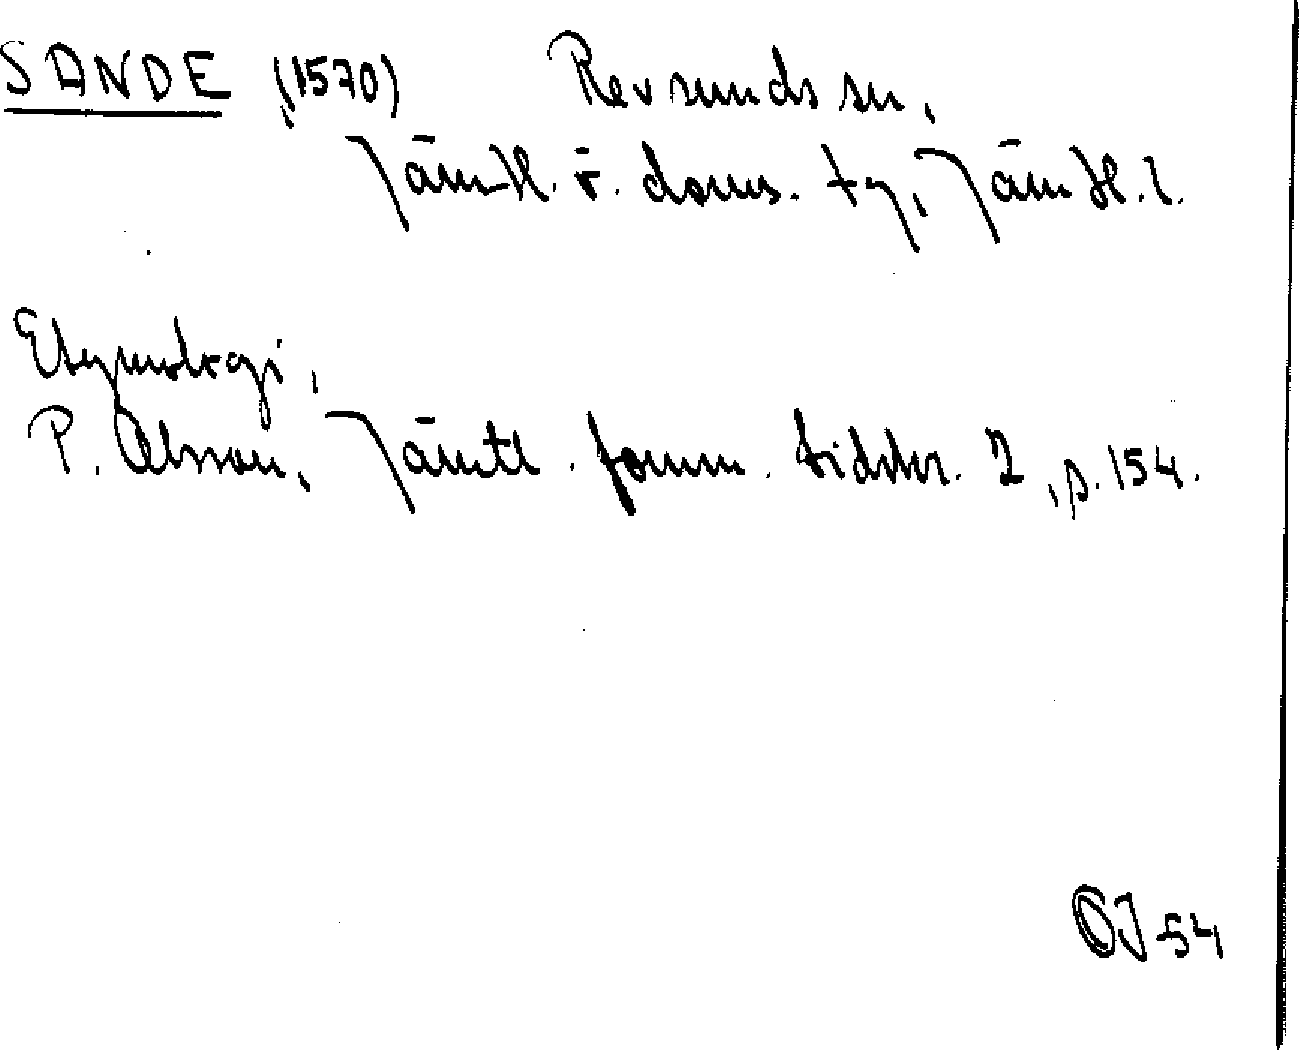 SANDE (1570) Revsunds sn,
Jämtl. ö. doms. tg, Jämtl. l.
Etymologi,
P. Olsson, Jämtl. fornm. tidskr. 2, p. 154.
OJ 54